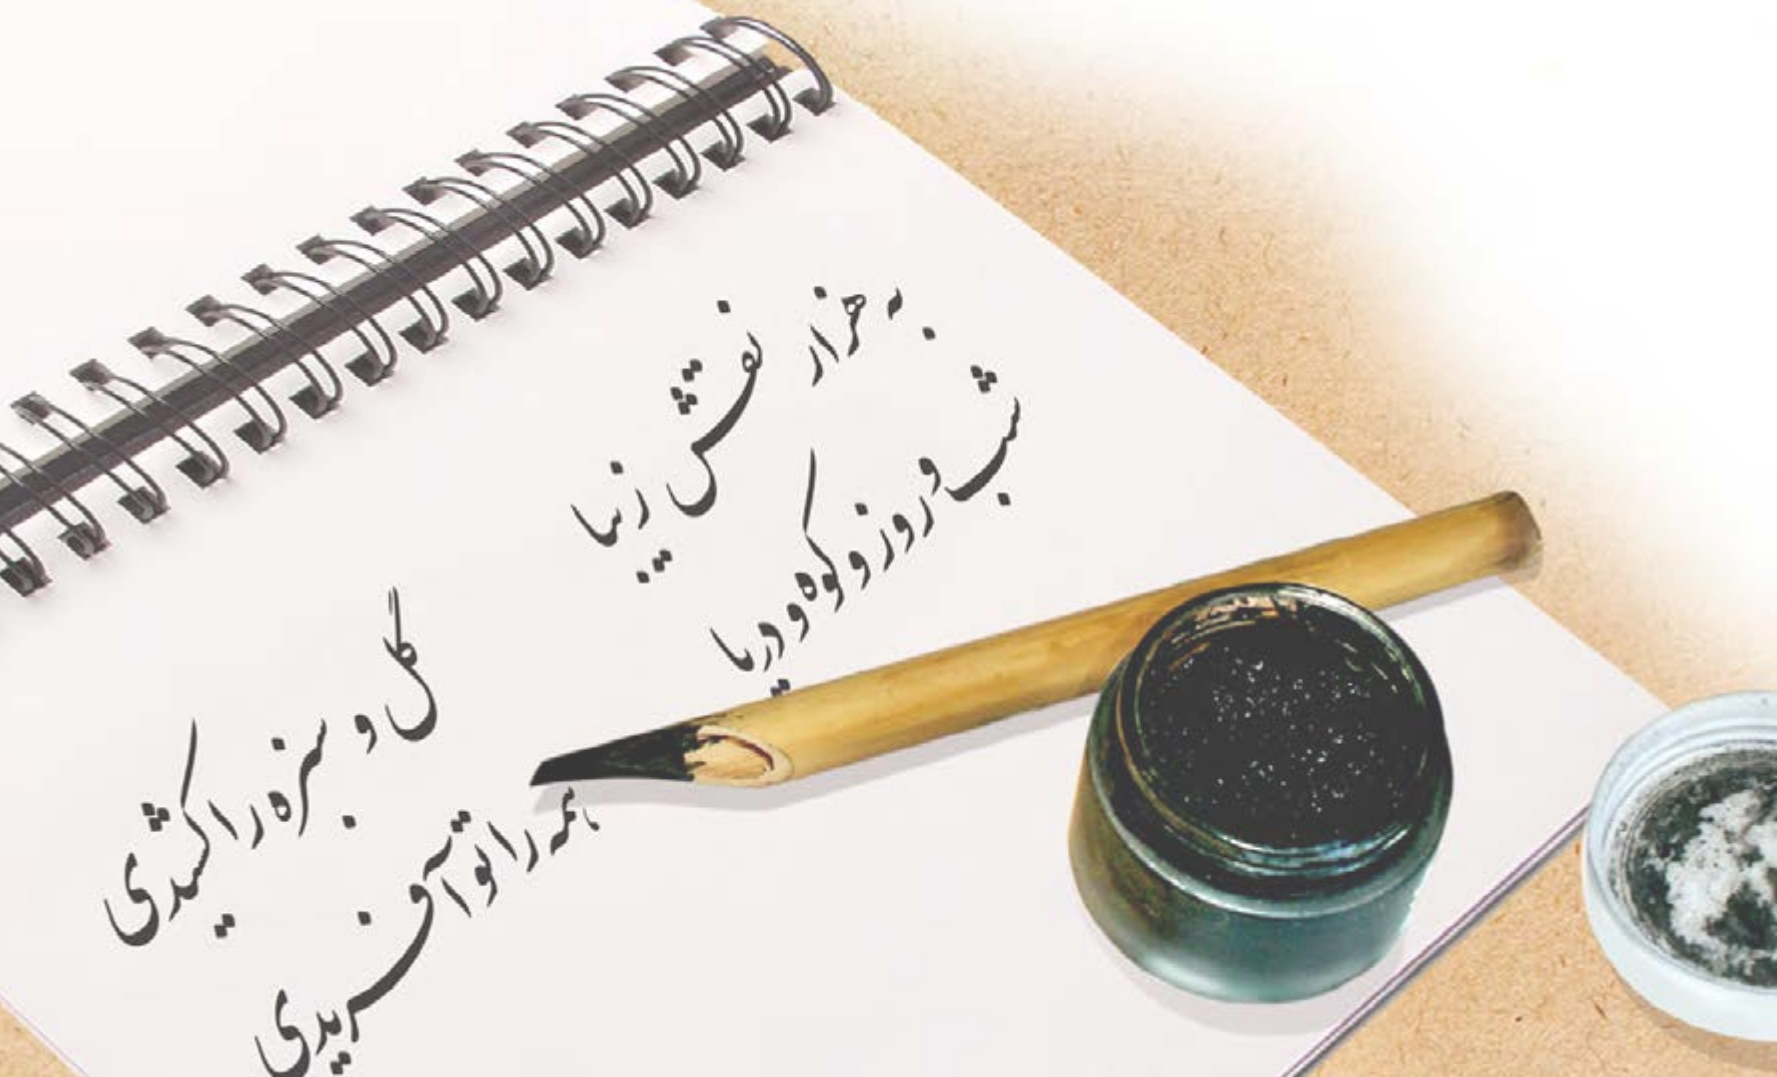 به هزار نقش زیبا
گل و سبزه را کشیدی
شب و روز و کوه و دریا
همه را تو آفریدی